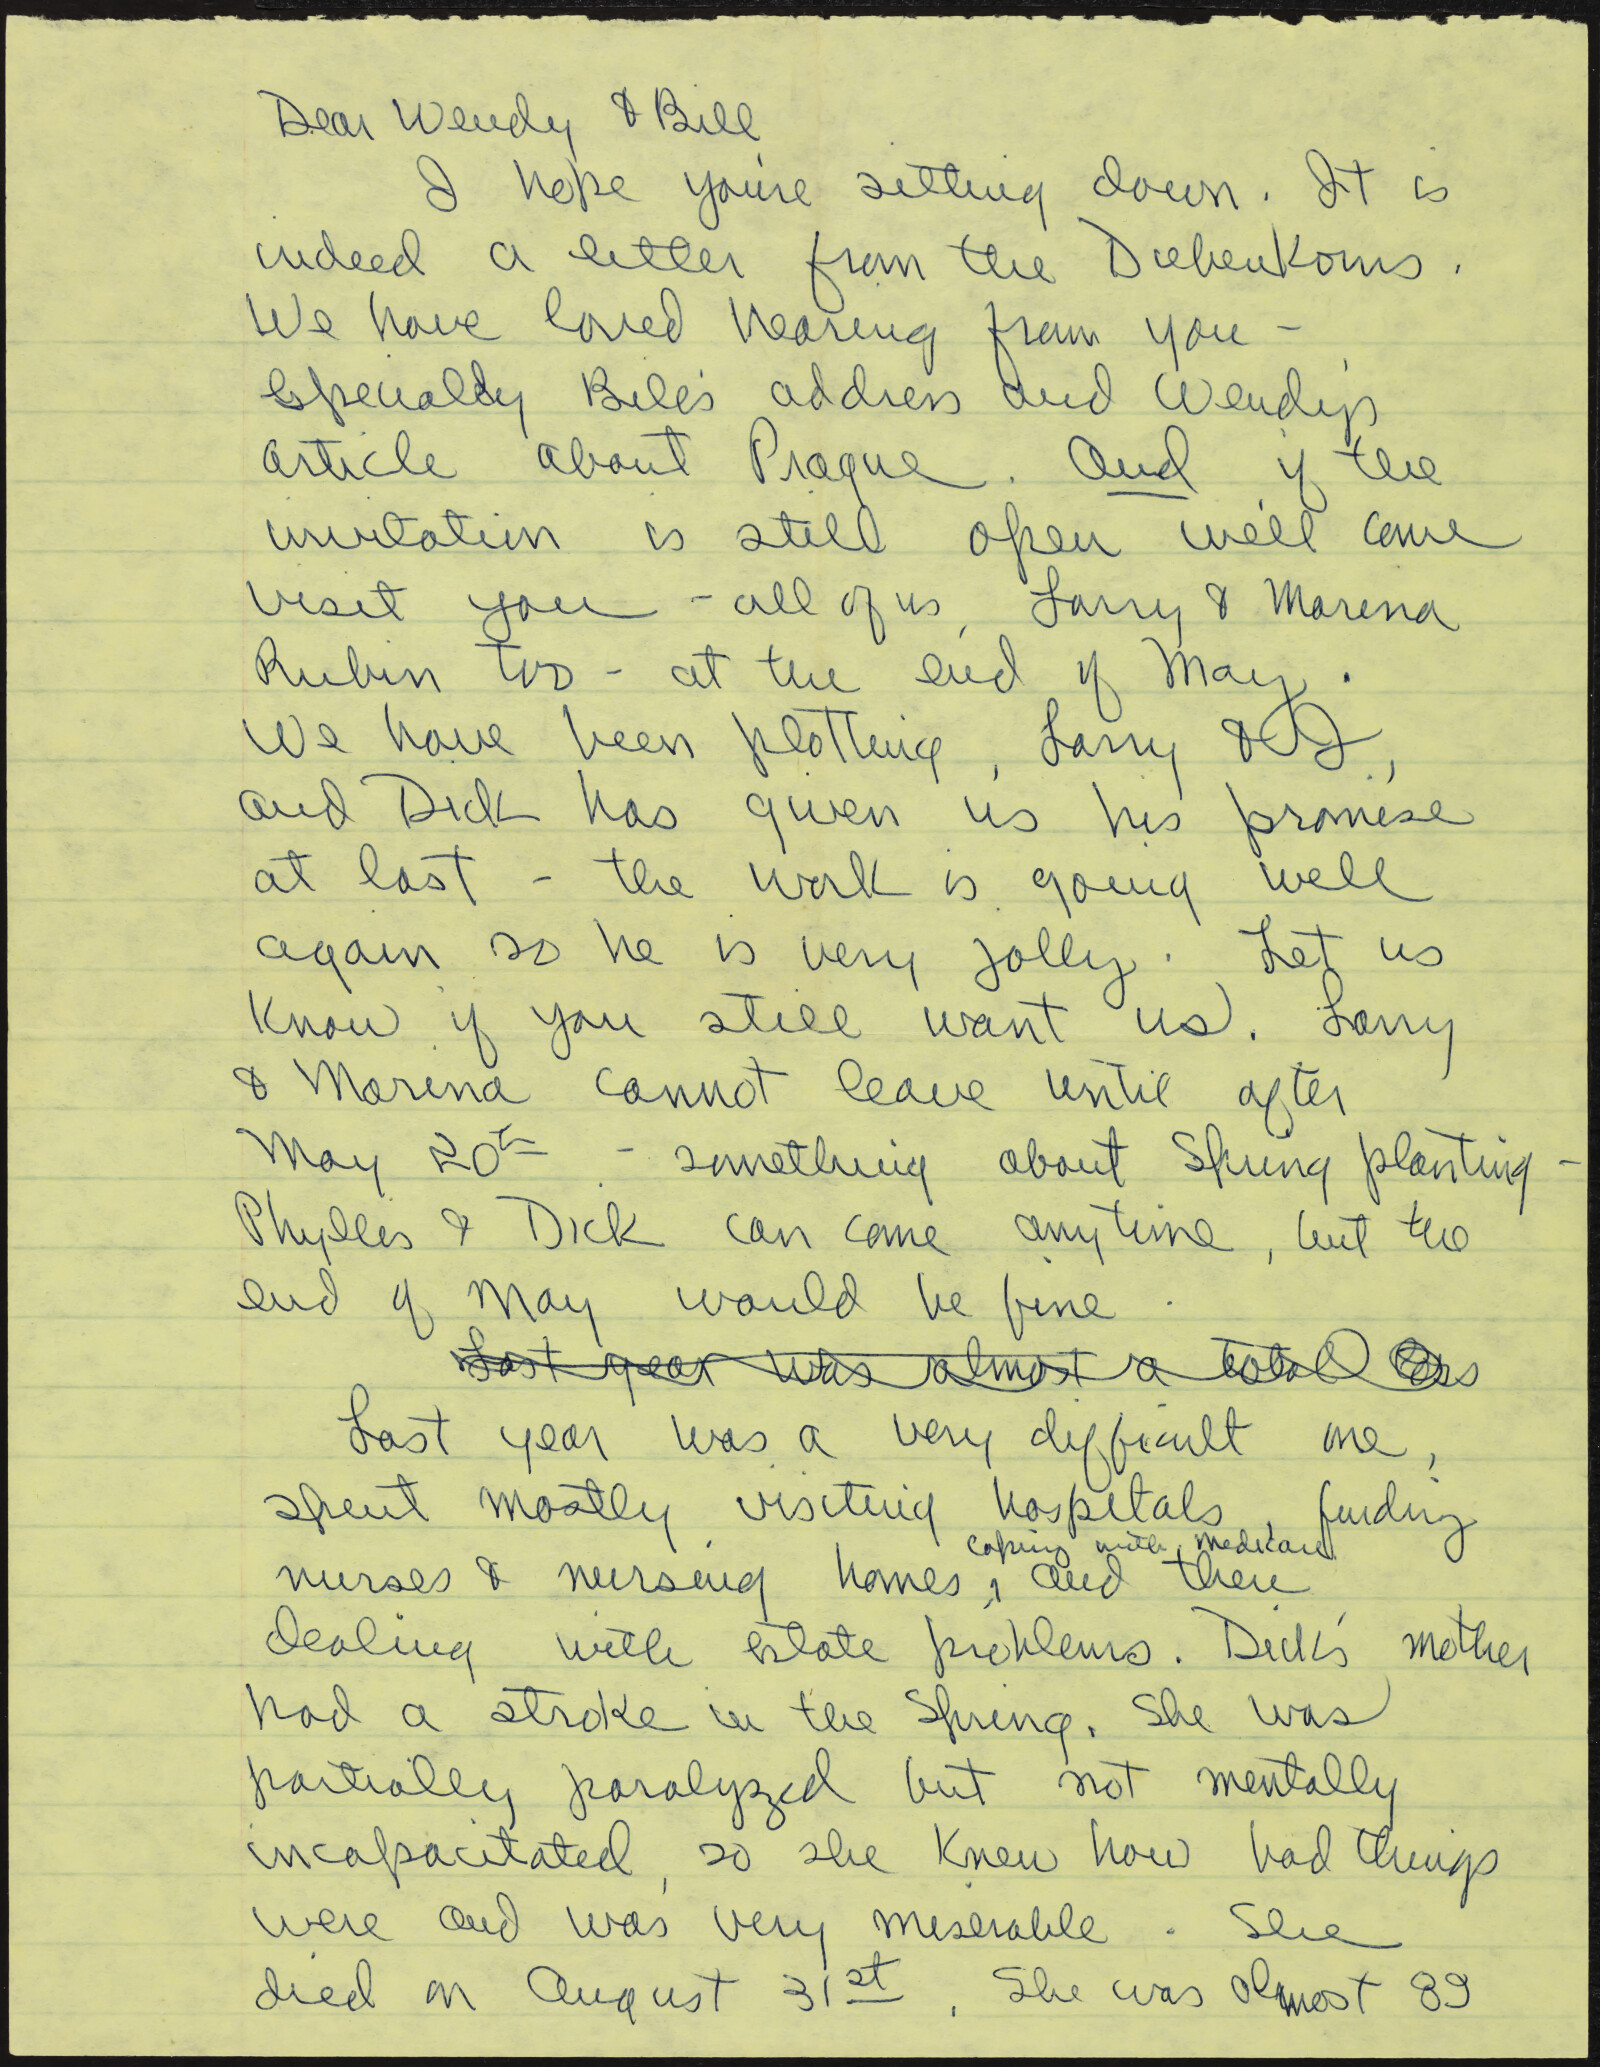 Dear Wendy & Bill,
I hope you're sitting down. It is
indeed a letter from the Diebenkorns.
We have loved hearing from you -
especially Bill's address and Wendy's
article about Prague. And if the
invitation is still open we'll come
visit you - all of us, Larry & Marina
Rubin too - at the end of May.
We have been plotting, Larry & I,
and Dick has given us his promise
at last - the work is going well
again so he is very jolly. Let us
know if you still want us. Larry
& Marina cannot leave until after
May 20th - something about Spring planting -
Phyllis & Dick can come anytime, but the
end of May would be fine.
Last year was almost a total loss
Last year was a very difficult one,
spent mostly visiting hospitals, finding
coping with medicare
nurses & nursing homes, and then
dealing with estate problems. Dick's mother
had a stroke in the Spring. She was
partially paralyzed but not mentally
incapacitated, so she knew how bad things
were and was very miserable. She
died on August 31st. She was almost 89